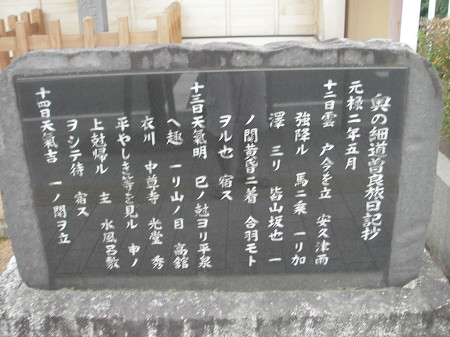 奥の細道曽良旅日記抄
元禄二年五月
十二日雲 戸今を立 安久津雨
強降ル 馬ニ乗 一リ加
澤 三リ 皆山坂也 一
ノ関黄昏ニ着 合羽モト
ヲル也 宿ス
十三日天氣明 巳ノ尅ヨリ平泉
へ趣 一リ山ノ目 高舘
衣川 中尊寺 光堂 秀
平やしき等ヲ見ル 申ノ
上尅帰ル 主 水風呂敷
ヲシテ待 宿ス
十四日天氣吉 一ノ関ヲ立